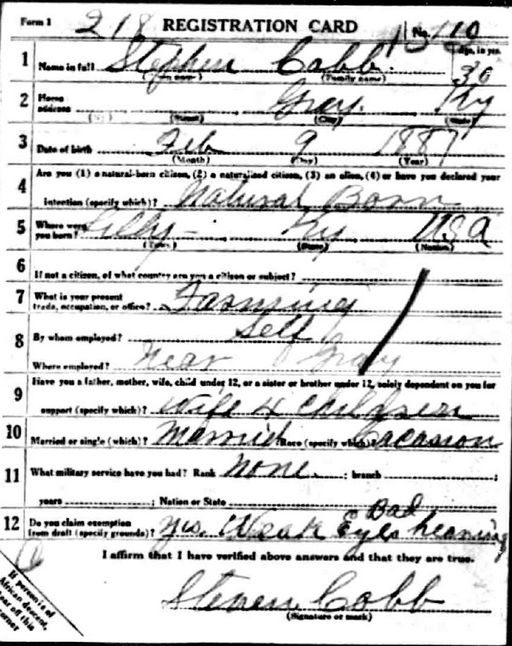 Form 1 218 REGISTRATION CARD No. 110
Age, in yrs.
1 Name in full Stephen Cobb. 30
(Given name) (Family name)
2 Home address Gray. Ky
(No.) (Street) (City) (State)
3 Date of birth Feb 9 1887
(Month) (Day) (Year)
4 Are you (1) a natural-born citizen, (2) a naturalized citizen, (3) an alien, (4) or have you declared your
intention (specify which)? Natural Born
5 Where were you born? Lilly - Ky USA
(Town) (State) (Nation)
6 If not a citizen, of what country are you a citizen or subject?
7 What is your present trade, occupation, or office? Farming
8 By whom employed? Self
Where employed? Near Gray
9 Have you a father, mother, wife, child under 12, or a sister or brother under 12, solely dependent on you for
support (specify which)? Wife 4 Children
10 Married or single (which)? Married Race (specify which)? Cacasion
11 What military service have you had? Rank None. ; branch ;
years ; Nation or State
12 Do you claim exemption from draft (specify grounds)? Yes. Weak Eyes Bad hearing
I affirm that I have verified above answers and that they are true.
Steven Cobb
(Signature or mark)
If person is of
African descent,
tear off this
corner